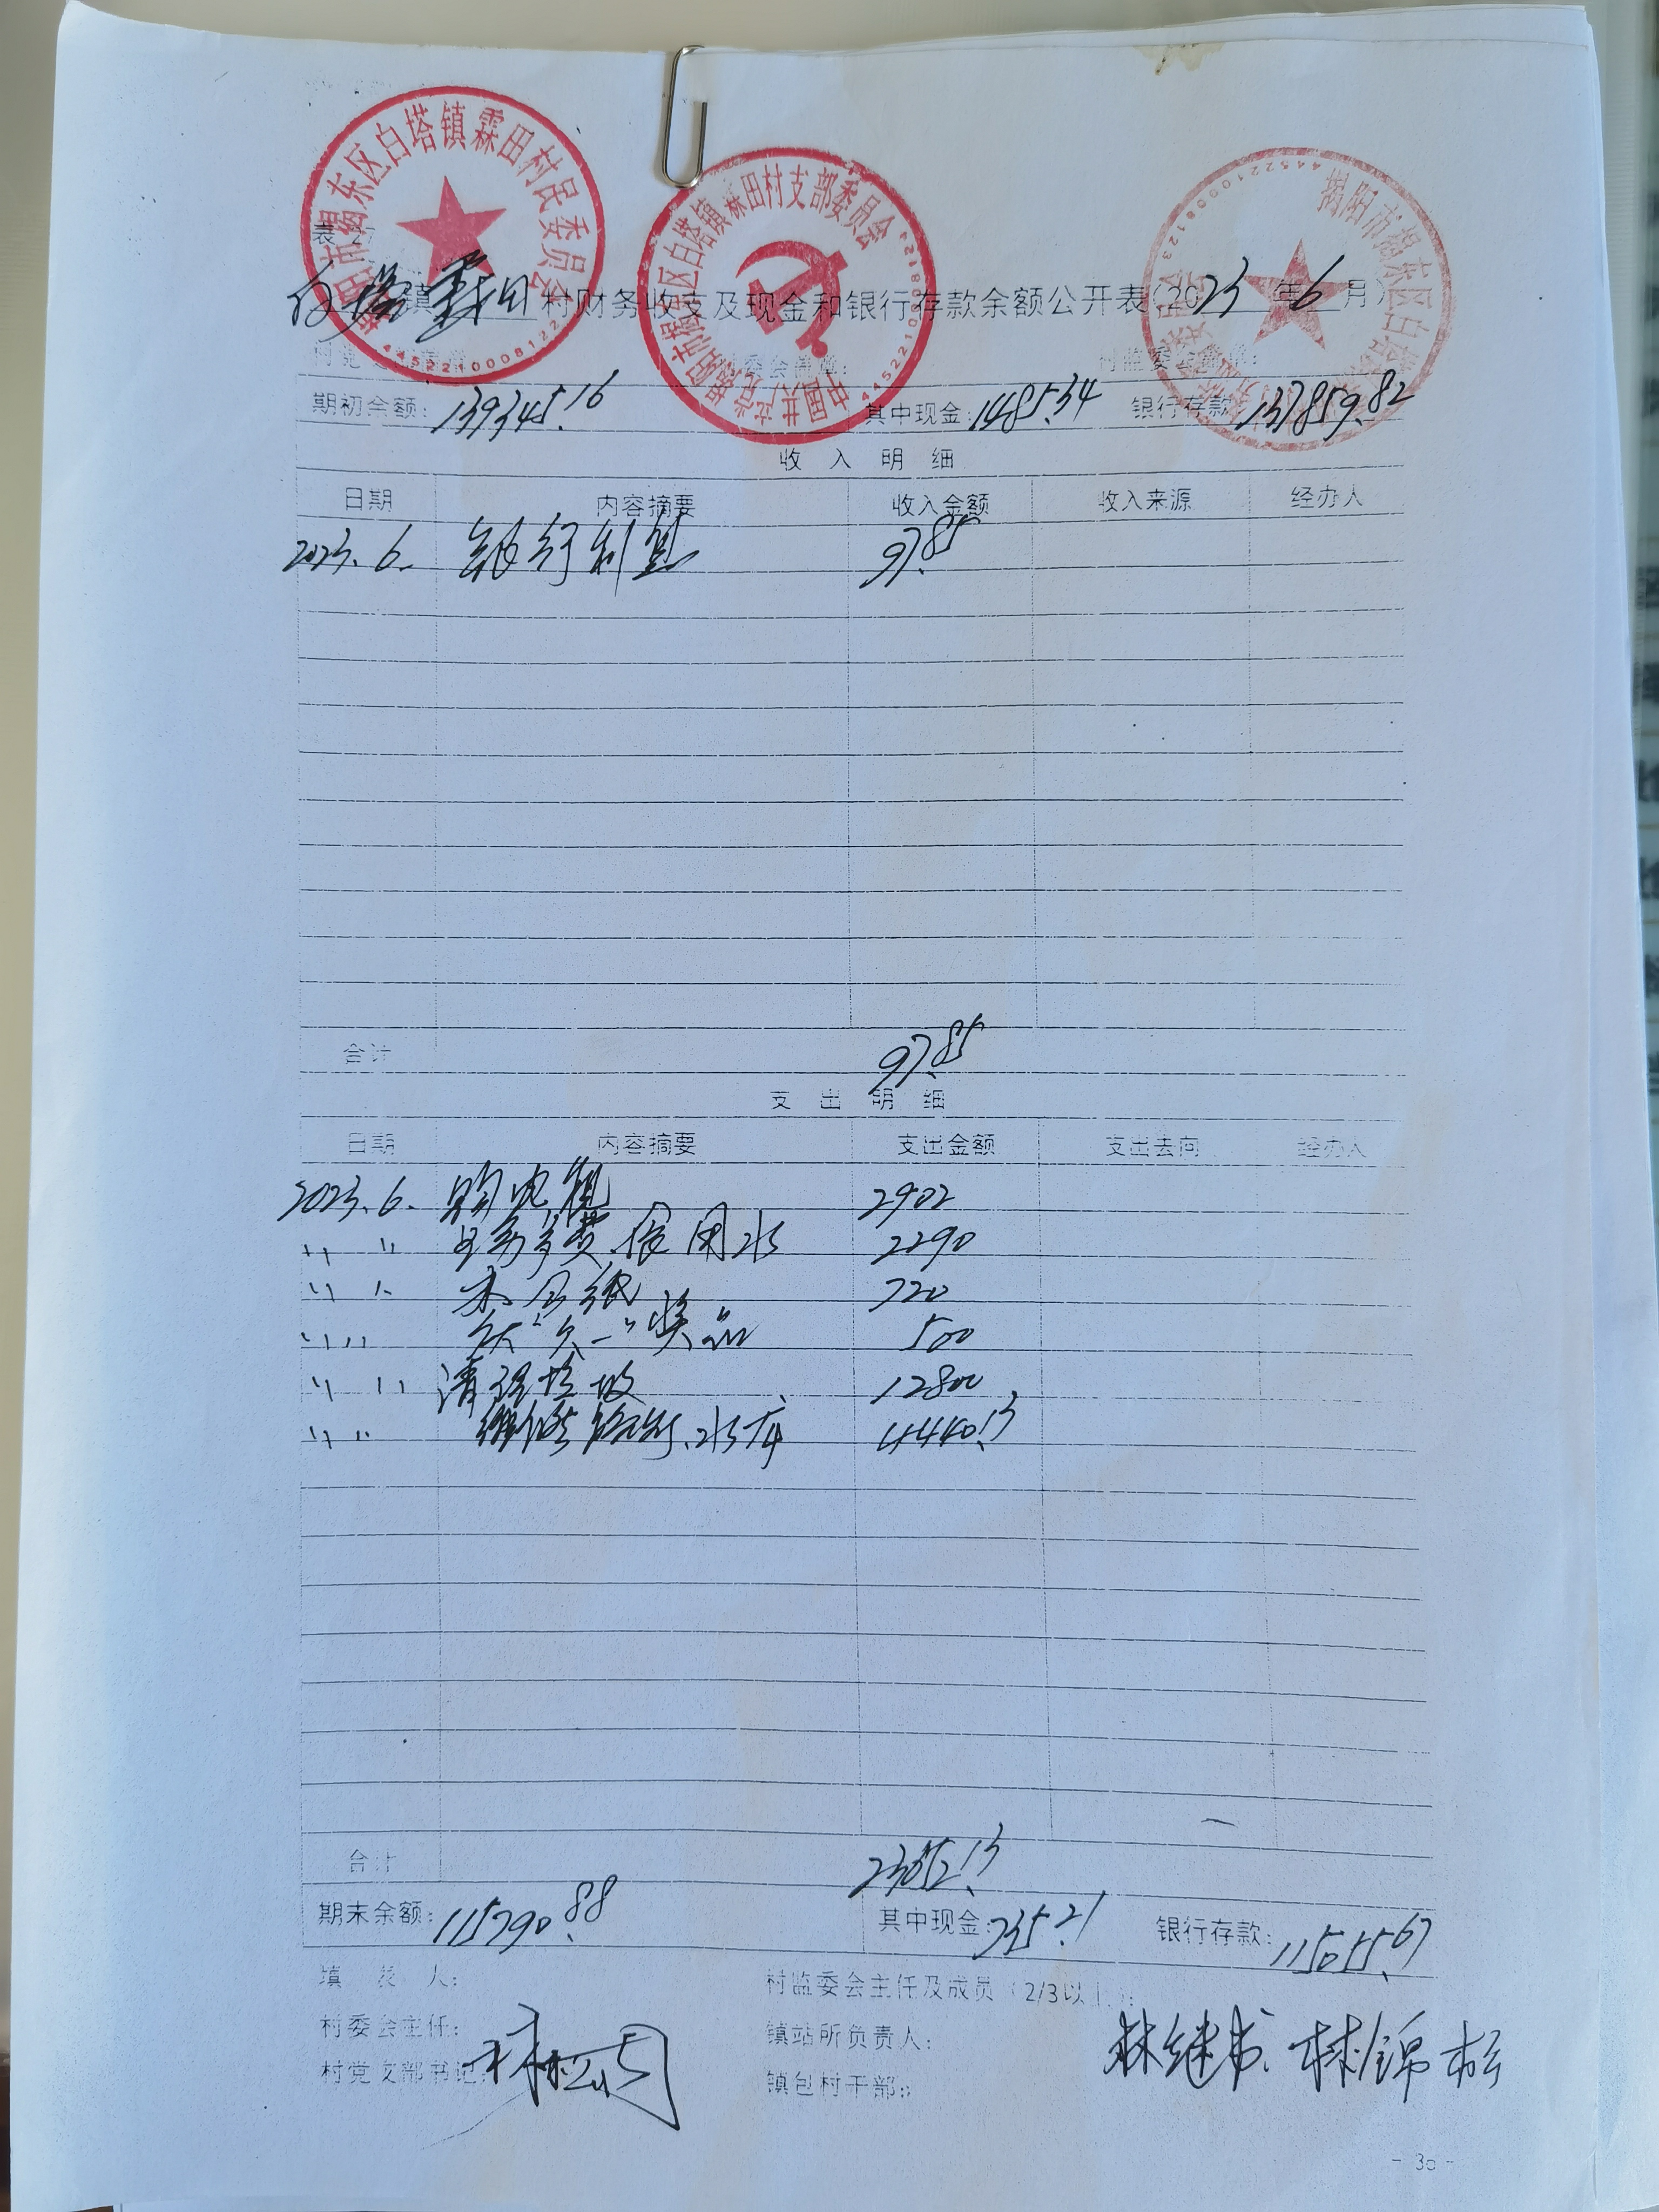 揭阳市揭东区白塔镇霖田村民委员会
4452210008122
中国共产党揭阳市揭东区白塔镇霖田村支部委员会
揭阳市揭东区白塔
表 27
白塔镇霖田村财务收支及现金和银行存款余额公开表(2023年6月)
村委会盖章: 村监委会盖章:
期初余额: 139345.16 其中现金: 1485.34 银行存款 137859.82
收 入 明 细
日期 内容摘要 收入金额 收入来源 经办人
2023.6. 银行利息 97.85
合计 97.85
支 出 明 细
日期 内容摘要 支出金额 支出去向 经办人
2023.6. 购电视 2902
〃 〃 食用水 2290
〃 〃 办公纸 720
〃 〃 庆"六一"奖品 500
〃 〃 清理垃圾 12800
〃 〃 维修路灯、水库 4440.13
合计 23652.13
期末余额: 115790.88 其中现金: 735.21 银行存款: 115055.67
填 表 人: 村监委会主任及成员(2/3以上):
村委会主任: 镇站所负责人: 林继书、林锦松
村党支部书记: 镇包村干部:
- 30 -